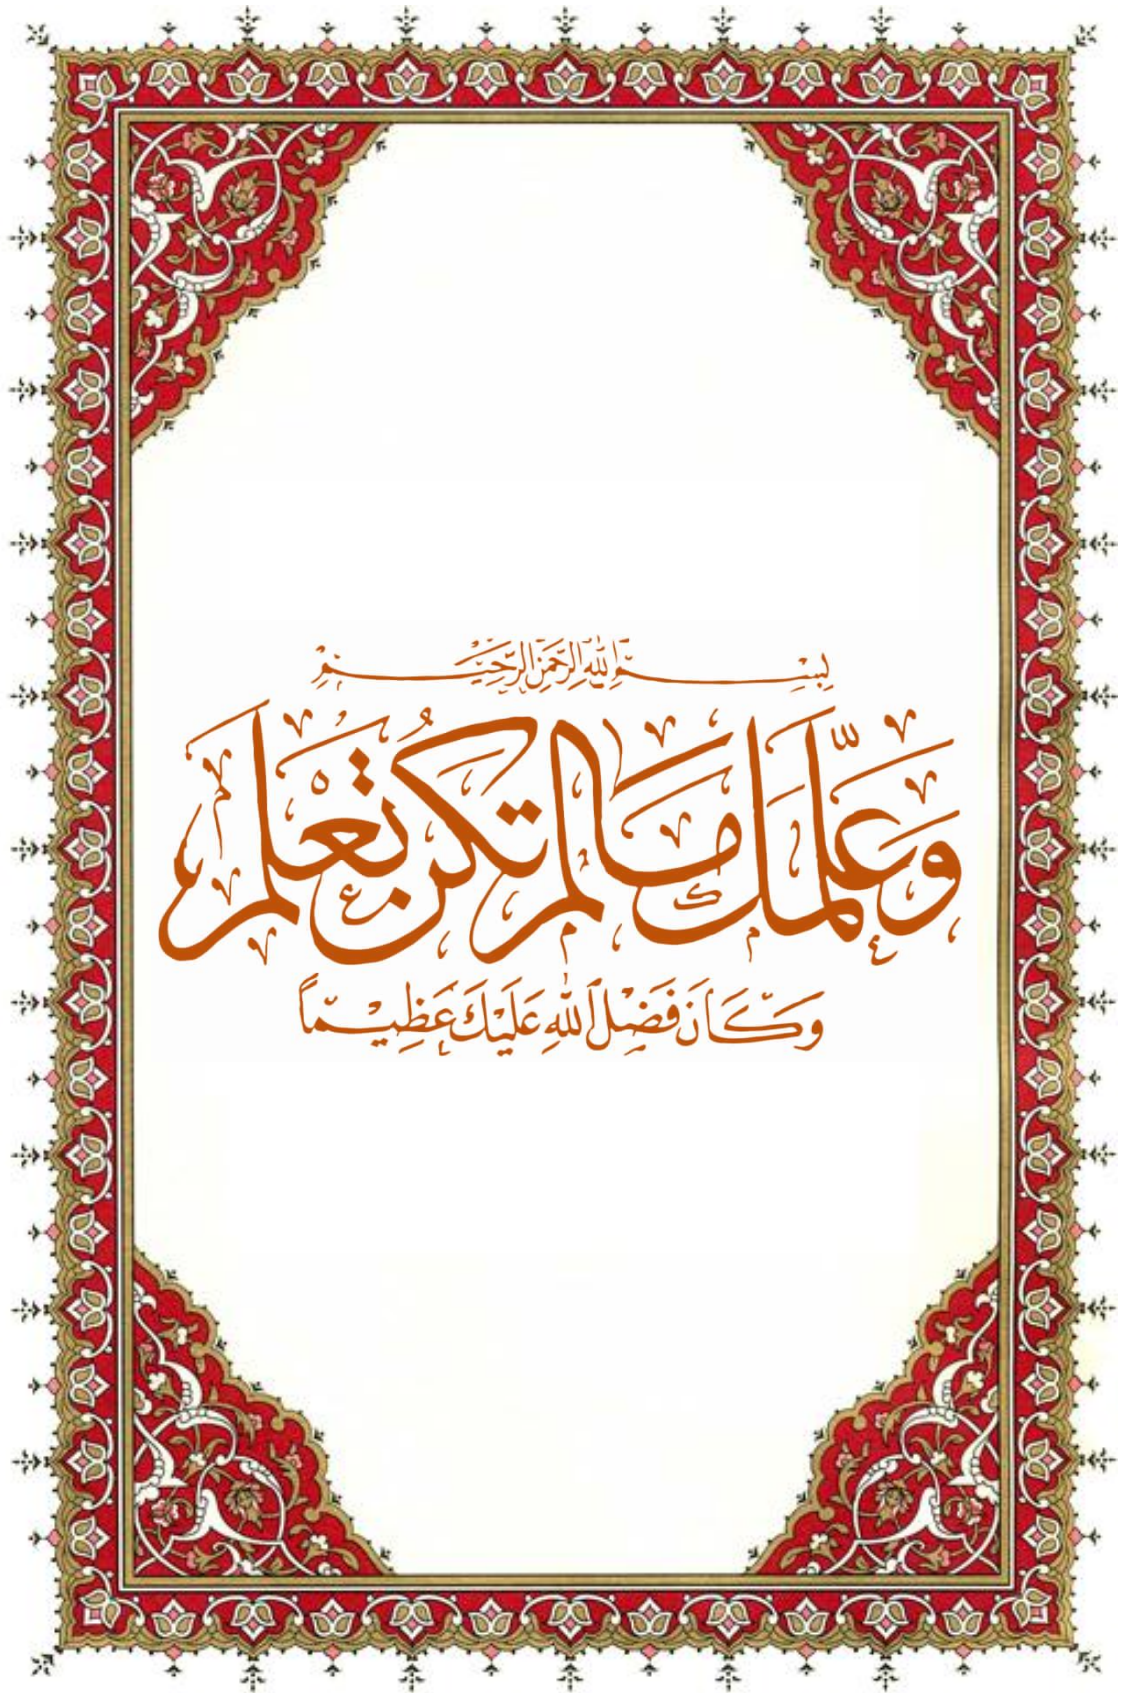 بِسْمِ اللَّهِ الرَّحْمَنِ الرَّحِيمِ
وَعَلَّمَكَ مَا لَمْ تَكُنْ تَعْلَمُ
وَكَانَ فَضْلُ اللَّهِ عَلَيْكَ عَظِيمًا